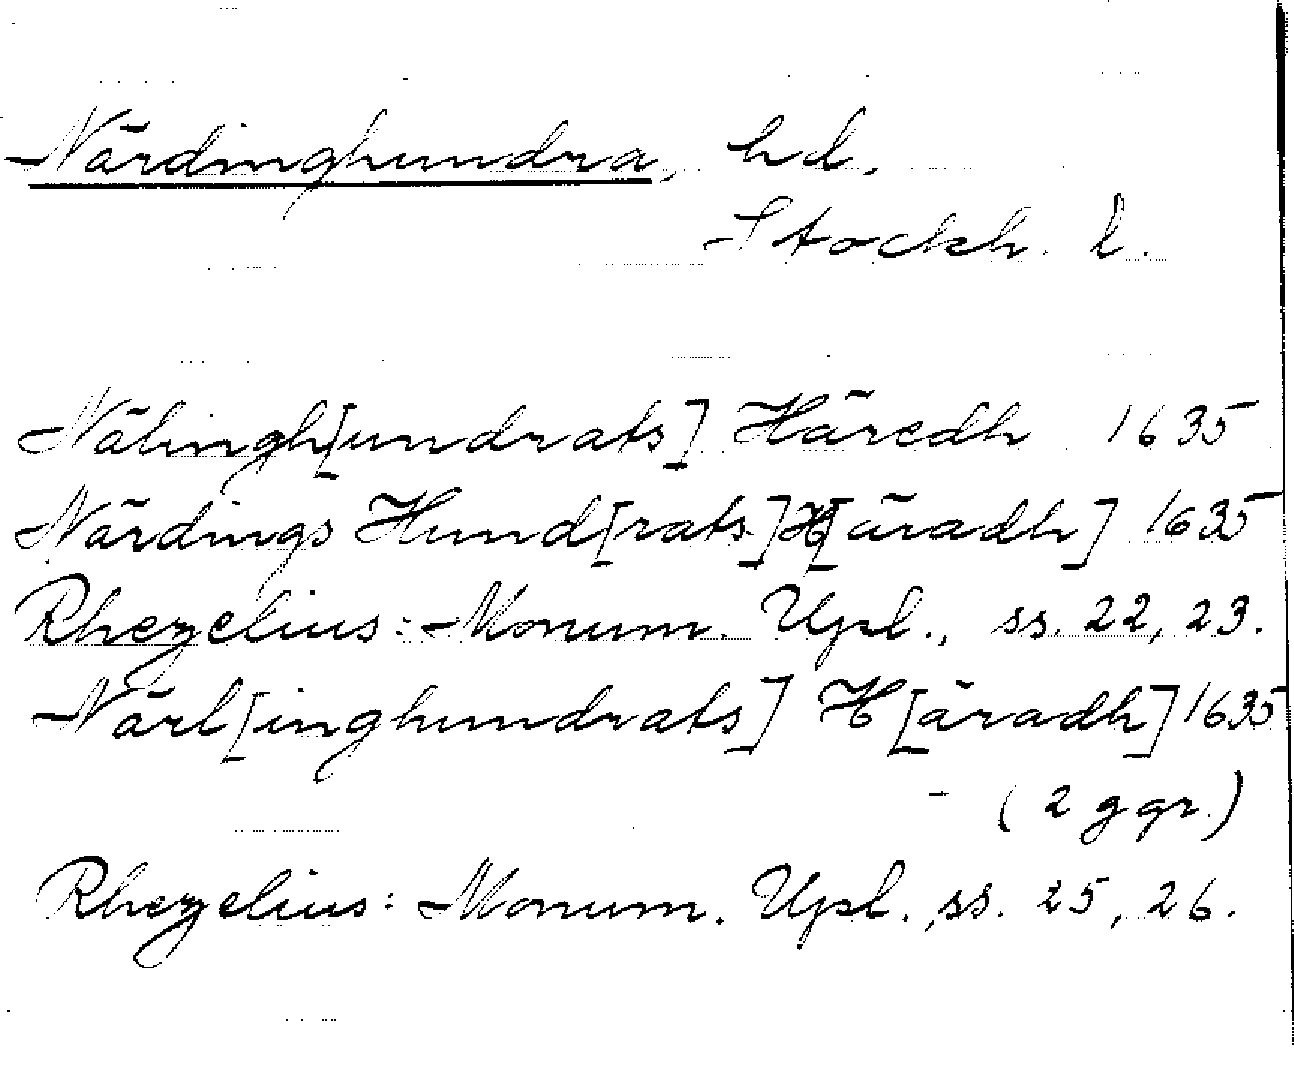 Närdinghundra, hd.
Stockh. l.
Nälingh[undrats] Häredh 1635
Närdings Hund[rats] H[äradh] 1635
Rhezelius: Monum. Upl., ss. 22, 23.
Närl[inghundrats] H[äradh] 1635
- (2 ggr.)
Rhezelius: Monum. Upl., ss. 25, 26.